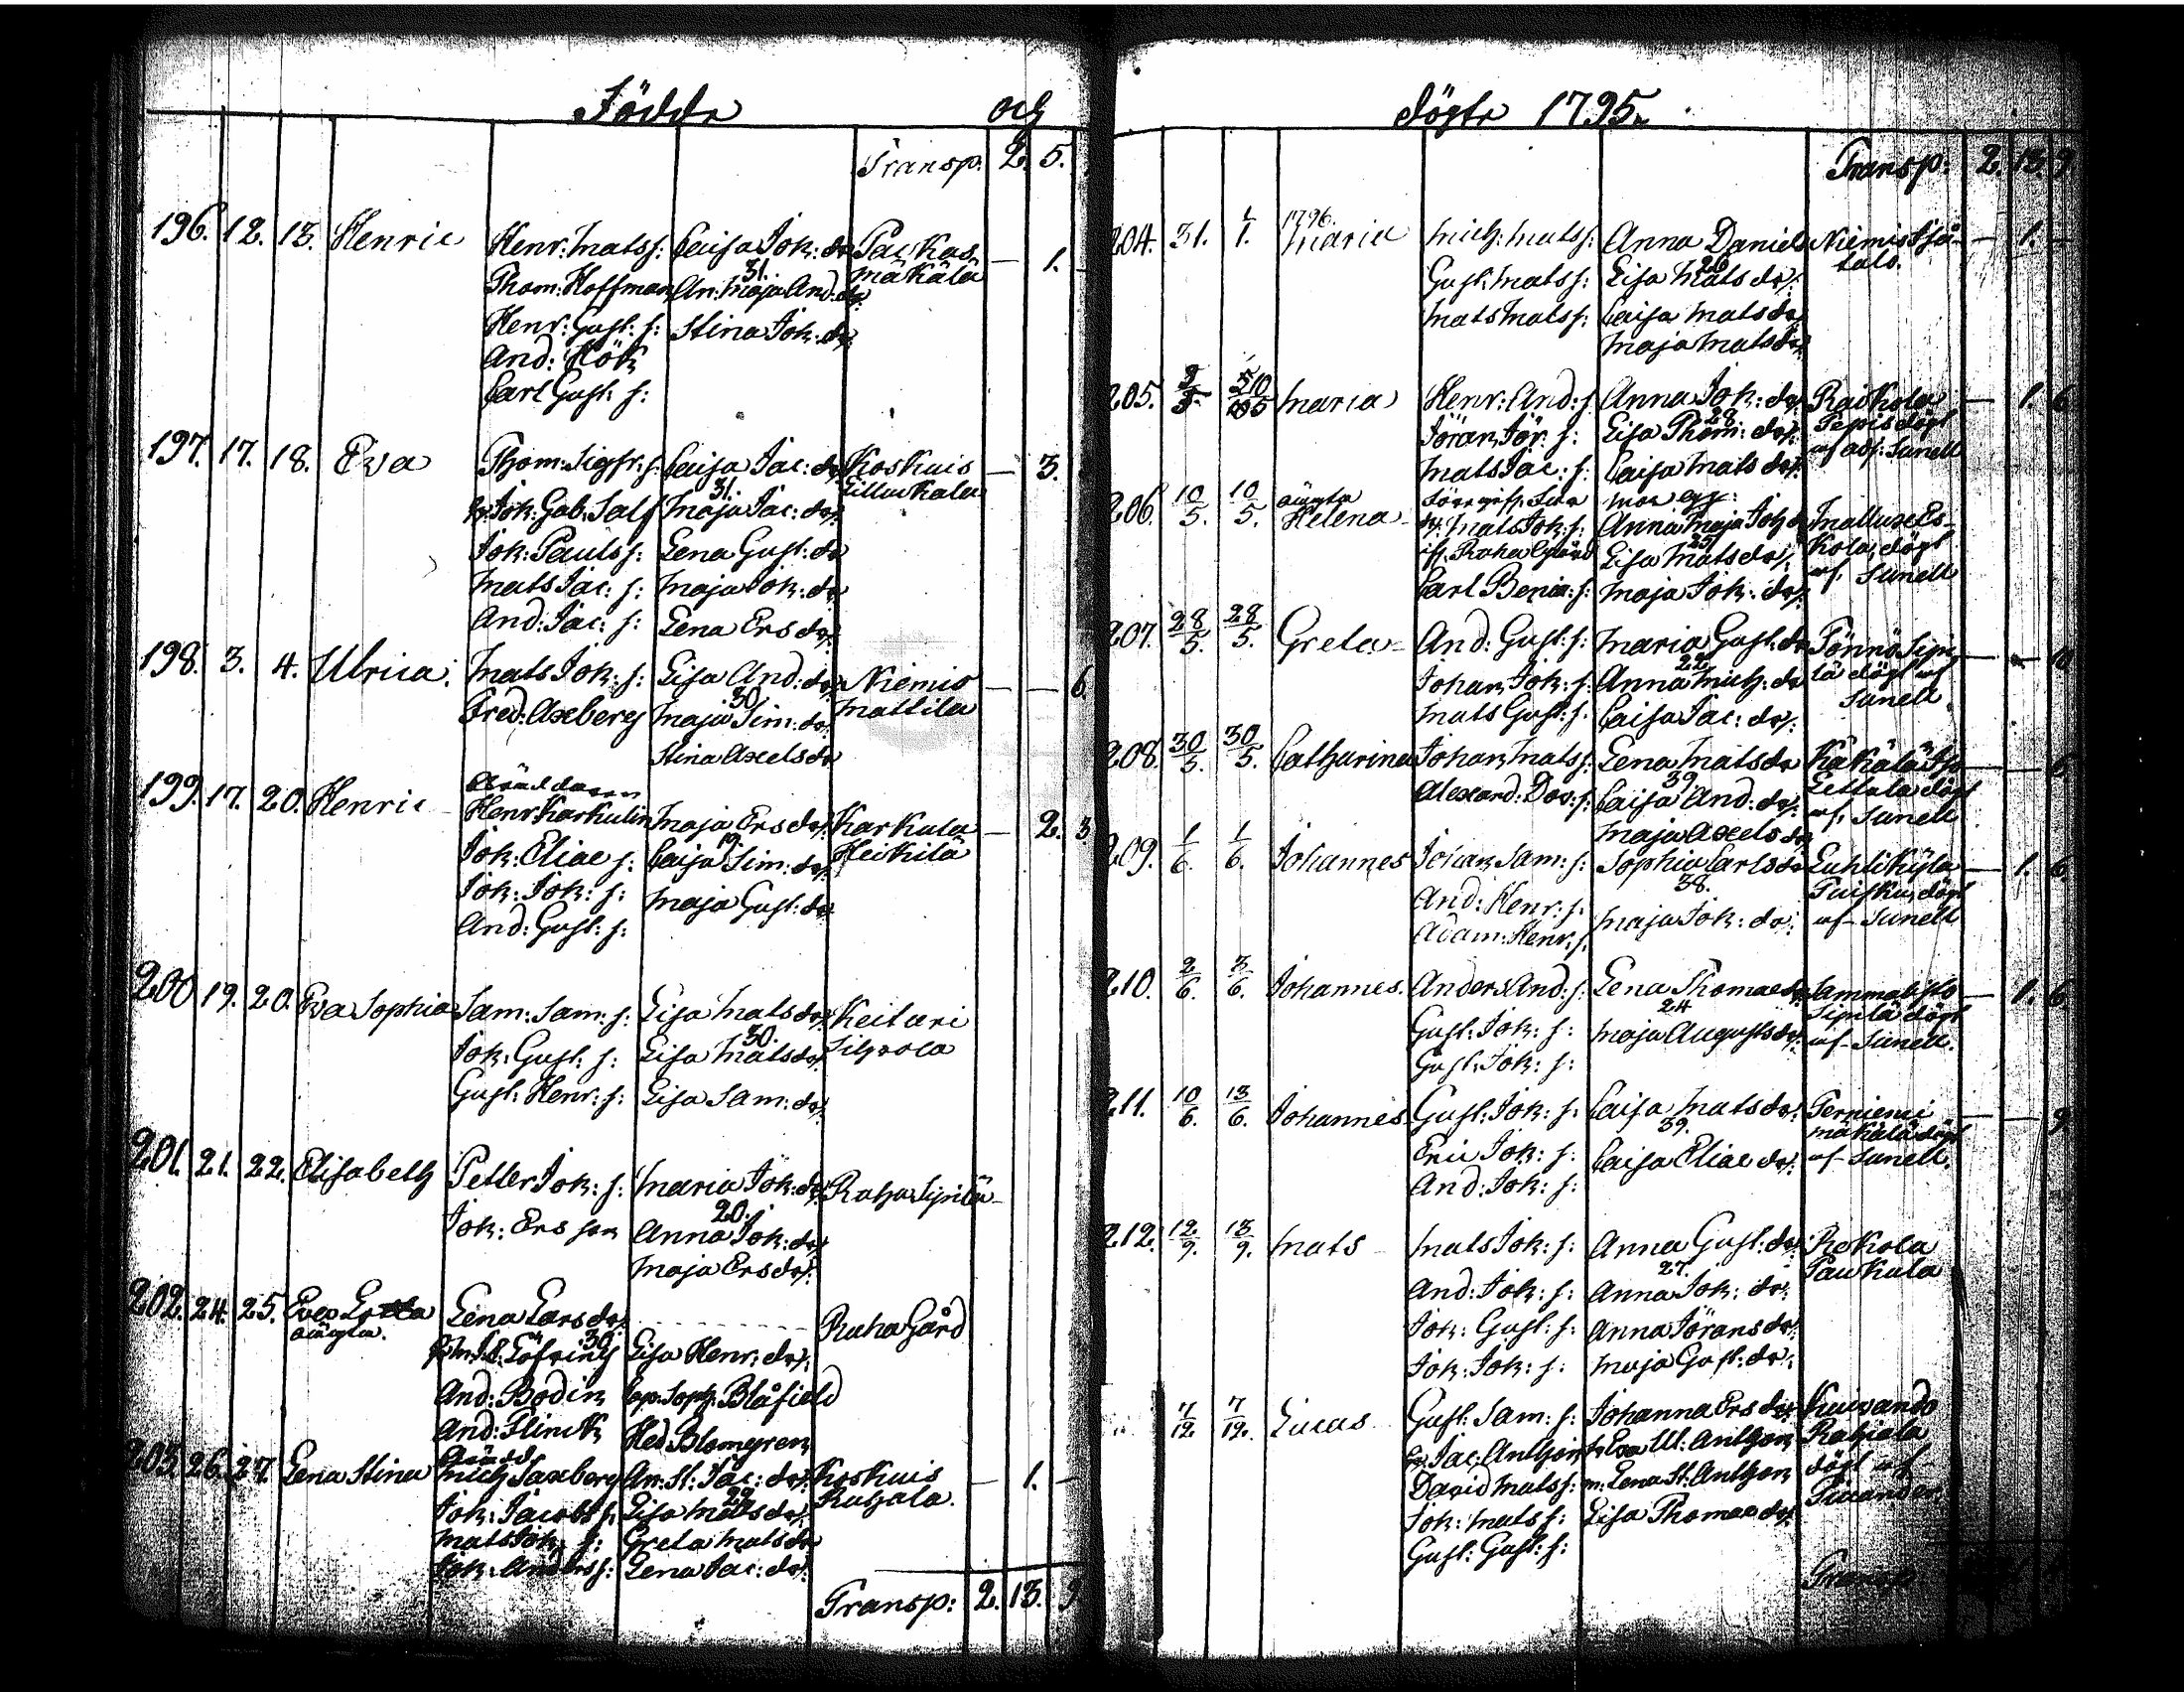 Födde och
Transp. 2. 5.
196. 12. 13. Henric Henr: Mats s: Caisa Joh: dr Paukas
31. Mäkälä — 1. —
Thom: Hoffman An: Maja And: dr
Henr: Gust: s: Stina Joh: dr
And: Hök
Carl Gust: s:
197. 17. 18. Eva Thom: Sigfr: s: Caisa Jac: dr Koskuis — 3.
31.
Joh: Gab: Salf Maja Jac: dr
Joh: Pauls s: Lena Gust: dr
Mats Jac: s: Maja Joh: dr
And: Jac: s: Lena Ers dr
198. 3. 4. Ulrica. Mats Joh: s: Lisa And: dr Niemis — — 6.
30. Mattila
Fred: Axeberg Maja Sim: dr
Stina Axels dr
199. 17. 20. Henric
Henr Karkulin Maja Ers dr Karkula — 2. 3.
19. Heikilä
Joh: Eliae s: Caisa Sim: dr
Joh: Joh: s: Maja Gust: dr
And: Gust: s:
200 19. 20. Eva Sophia Sam: Sam: s: Lisa Mats dr Keikari
30.
Joh: Gust: s: Lisa Mats dr
Gust: Henr: s: Lisa Sam: dr
201. 21. 22. Elisabeth Petter Joh: s: Maria Joh: dr Raha Sipilä
20.
Joh: Ers son Anna Joh: dr
Maja Ers dr
202. 24. 25. Eva Lena Lars dr Raha Gård
oäugta. 30
Löfving Lisa Henr: dr
And: Bodin Soph: Blåfield
And: Flinck Hed: Blomgren
203. 26. 27. Lena Stina Mich Saxberg An: St: Jac: dr Koskuis — 1. —
29. Rahala.
Joh: Jacobs s: Lisa Mats dr
Mats Joh: s: Greta Mats dr
Joh: Anders s: Lena Jac: dr
Transp: 2. 13. 9
döpte 1795.
Transp: 2. 13. 9.
1796.
204. 31. 1/1. Maria Mich: Mats s: Anna Daniels Niemis
26 talo. — 1. —
Gust: Mats s: Lisa Mats dr
Mats Mats s: Caisa Mats dr
Maja Mats dr
205. Maria Henr: And: s Anna Joh: dr Raikola — 1. 6
29
Jöran Jör: s: Lisa Thom: dr döpt
Mats Jac: s: Caisa Mats dr af adj: Sunell
206. 10/5. 10/5. oäugta
Helena Mats Joh: s: Anna Maja Joh dr
25 döpt
Raha Gård Lisa Mats dr
Carl Benja: s: Maja Joh: dr af Sunell
207. 28/5. 28/5. Greta And: Gust: s: Maria Gust: dr Tönnö Sipi
22 lä döpt af
Johan Joh: s: Anna Mich: dr Sunell
Mats Gust: s: Caisa Jac: dr
208. 30/5. 30/5. Catharina Johan Mats s: Lena Mats dr
39 döpt
Alexand: Dav: s: Caisa And: dr af Sunell
Maja Axels dr
209. 1/6. 1/6. Johannes Johan Sam: s: Sophia Carls dr — 1. 6.
38. döpt
And: Henr: s: Maja Joh: dr af Sunell
Adam: Henr: s:
210. 2/6. 3/6. Johannes. Anders And: s: Lena Thomae dr — 1. 6
24 Sipilä döpt
Gust: Joh: s: Maja Augusts dr af Sunell.
Gust: Joh: s:
211. 10/6. 13/6. Johannes Gust: Joh: s: Caisa Mats dr Perniemi — — 9
39. Mäkälä döpt
Eric Joh: s: Caisa Eliae dr af Sunell.
And: Joh: s:
212. 12/9. 13/9. Mats Mats Joh: s: Anna Gust: dr Rekola
27. Paukula
And: Joh: s: Anna Joh: dr
Joh: Gust: s: Anna Jörans dr
Joh: Joh: s: Maja Gust: dr
7/12. 7/12. Lucas Gust: Sam: s: Johanna Ers dr Kuivando
Jac: Anthon Eva Ul: Anthon Rahiala
David Mats s: Lena St: Anthon döpt af
Joh: Mats s: Lisa Thomae dr
Gust: Gust: s: